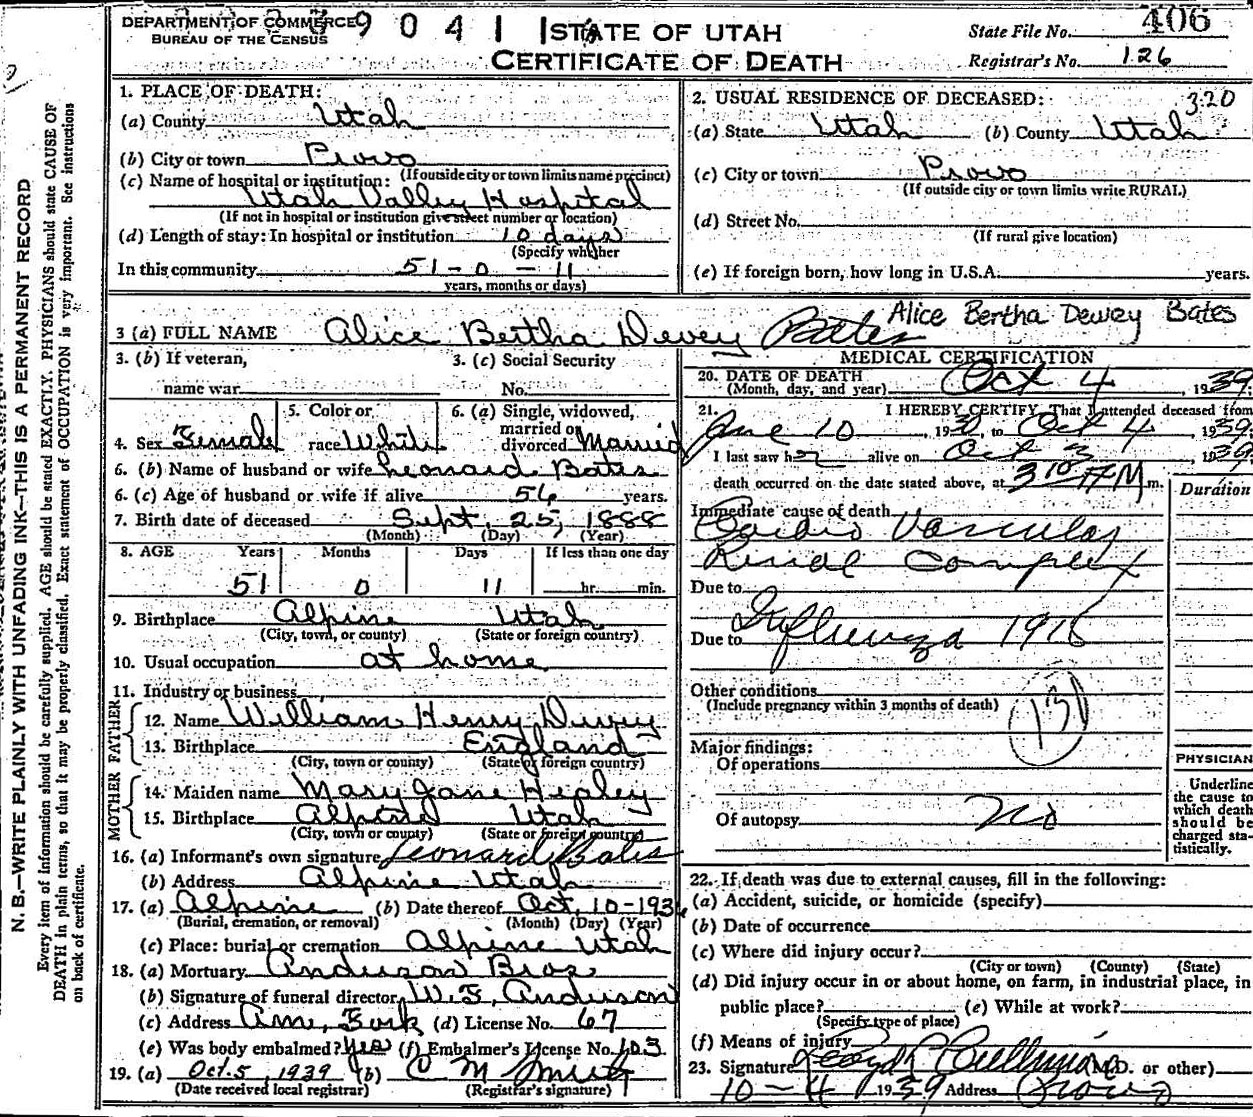 DEPARTMENT OF COMMERCE
BUREAU OF THE CENSUS
39041
STATE OF UTAH
CERTIFICATE OF DEATH
State File No. 406
Registrar's No. 126
1. PLACE OF DEATH:
(a) County Utah
(b) City or town Provo
(If outside city or town limits name precinct)
(c) Name of hospital or institution:
Utah Valley Hospital
(If not in hospital or institution give street number or location)
(d) Length of stay: In hospital or institution 10 days
(Specify whether
In this community 51-0-11
years, months or days)
2. USUAL RESIDENCE OF DECEASED: 320
(a) State Utah (b) County Utah
(c) City or town Provo
(If outside city or town limits write RURAL)
(d) Street No.
(If rural give location)
(e) If foreign born, how long in U.S.A. years.
3 (a) FULL NAME Alice Bertha Devey Bates
Alice Bertha Dewey Bates
3. (b) If veteran,
name war
3. (c) Social Security
No.
4. Sex Female
5. Color or
race White
6. (a) Single, widowed,
married or
divorced Married
6. (b) Name of husband or wife Leonard Bates
6. (c) Age of husband or wife if alive 56 years.
7. Birth date of deceased Sept. 25, 1888
(Month) (Day) (Year)
8. AGE Years Months Days If less than one day
51 0 11 hr. min.
9. Birthplace Alpine Utah
(City, town, or county) (State or foreign country)
10. Usual occupation at home
11. Industry or business
FATHER
12. Name William Henry Devey
13. Birthplace England
(City, town or county) (State of foreign country)
MOTHER
14. Maiden name Mary Jane Healey
15. Birthplace Alpine Utah
(City, town or county) (State or foreign country)
16. (a) Informant's own signature Leonard Bates
(b) Address Alpine Utah
17. (a) Alpine (b) Date thereof Oct. 10-193
(Burial, cremation, or removal) (Month) (Day) (Year)
(c) Place: burial or cremation Alpine Utah
18. (a) Mortuary Anderson Bros
(b) Signature of funeral director W. F. Anderson
(c) Address Am. Fork (d) License No. 67
(e) Was body embalmed? Yes (f) Embalmer's License No. 103
19. (a) Oct. 5, 1939 (b) C M Smith
(Date received local registrar) (Registrar's signature)
MEDICAL CERTIFICATION
20. DATE OF DEATH
(Month, day, and year) Oct 4, 1939.
21. I HEREBY CERTIFY, That I attended deceased from
June 10 1930, to Oct 4, 1939.
I last saw her alive on Oct 3 1939.
death occurred on the date stated above, at 3 10 A M m.
Immediate cause of death Duration
Cardio Vascular
Renal Complex
Due to
Due to Influenza 1918
Other conditions
(Include pregnancy within 3 months of death)
131
Major findings:
Of operations
Of autopsy No
PHYSICIAN
Underline
the cause to
which death
should be
charged sta-
tistically.
22. If death was due to external causes, fill in the following:
(a) Accident, suicide, or homicide (specify)
(b) Date of occurrence
(c) Where did injury occur?
(City or town) (County) (State)
(d) Did injury occur in or about home, on farm, in industrial place, in
public place? (e) While at work?
(Specify type of place)
(f) Means of injury
23. Signature Cullimore (M.D. or other)
10-4 1939 Address Provo
N. B.—WRITE PLAINLY WITH UNFADING INK—THIS IS A PERMANENT RECORD
Every item of information should be carefully supplied. AGE should be stated EXACTLY. PHYSICIANS should state CAUSE OF
DEATH in plain terms, so that it may be properly classified. Exact statement of OCCUPATION is very important. See instructions
on back of certificate.